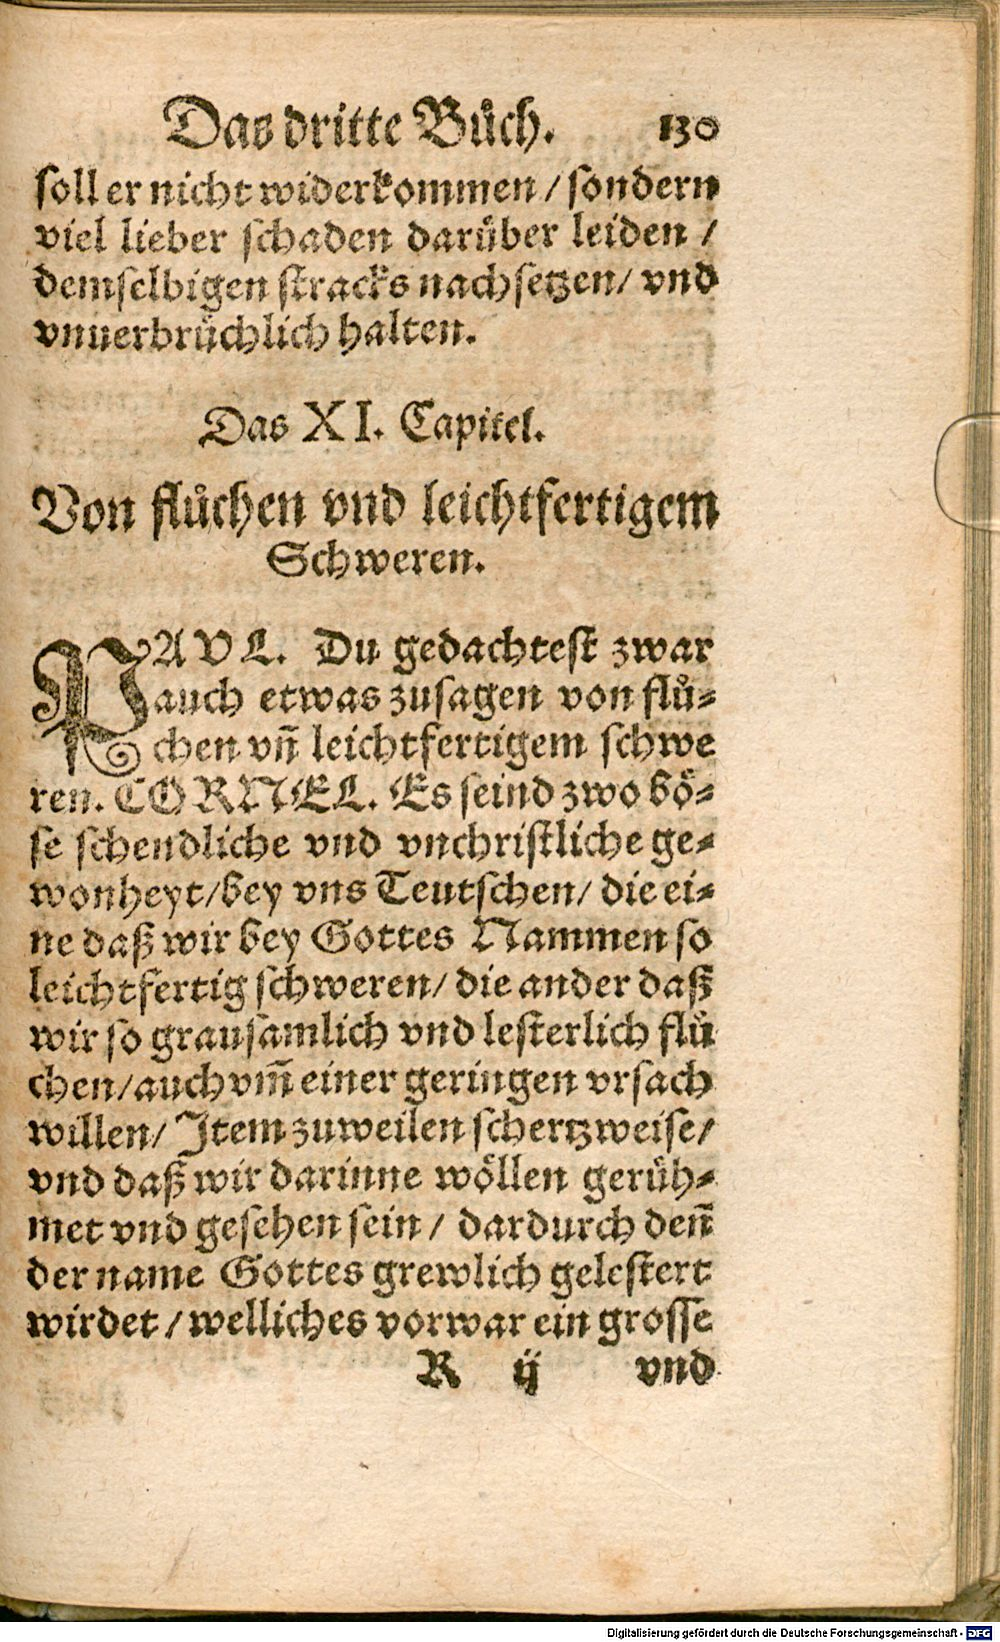 Das dritte Bůch. 130
soll er nicht widerkommen / sondern
viel lieber schaden darüber leiden /
demselbigen stracks nachsetzen / vnd
vnuerbrüchlich halten.
Das XI. Capitel.
Von flůchen vnd leichtfertigem
Schweren.
PAVL. Du gedachtest zwar
auch etwas zusagen von flů-
chen vñ leichtfertigem schwe
ren. CORNEL. Es seind zwo bö-
se schendliche vnd vnchristliche ge-
wonheyt / bey vns Teutschen / die ei-
ne daß wir bey Gottes Nammen so
leichtfertig schweren / die ander daß
wir so grausamlich vnd lesterlich flů
chen / auch vm̃ einer geringen vrsach
willen / Item zuweilen schertzweise /
vnd daß wir darinne wöllen gerüh-
met vnd gesehen sein / dardurch deñ
der name Gottes grewlich gelestert
wirdet / welliches vorwar ein grosse
R ij vnd
Digitalisierung gefördert durch die Deutsche Forschungsgemeinschaft - DFG